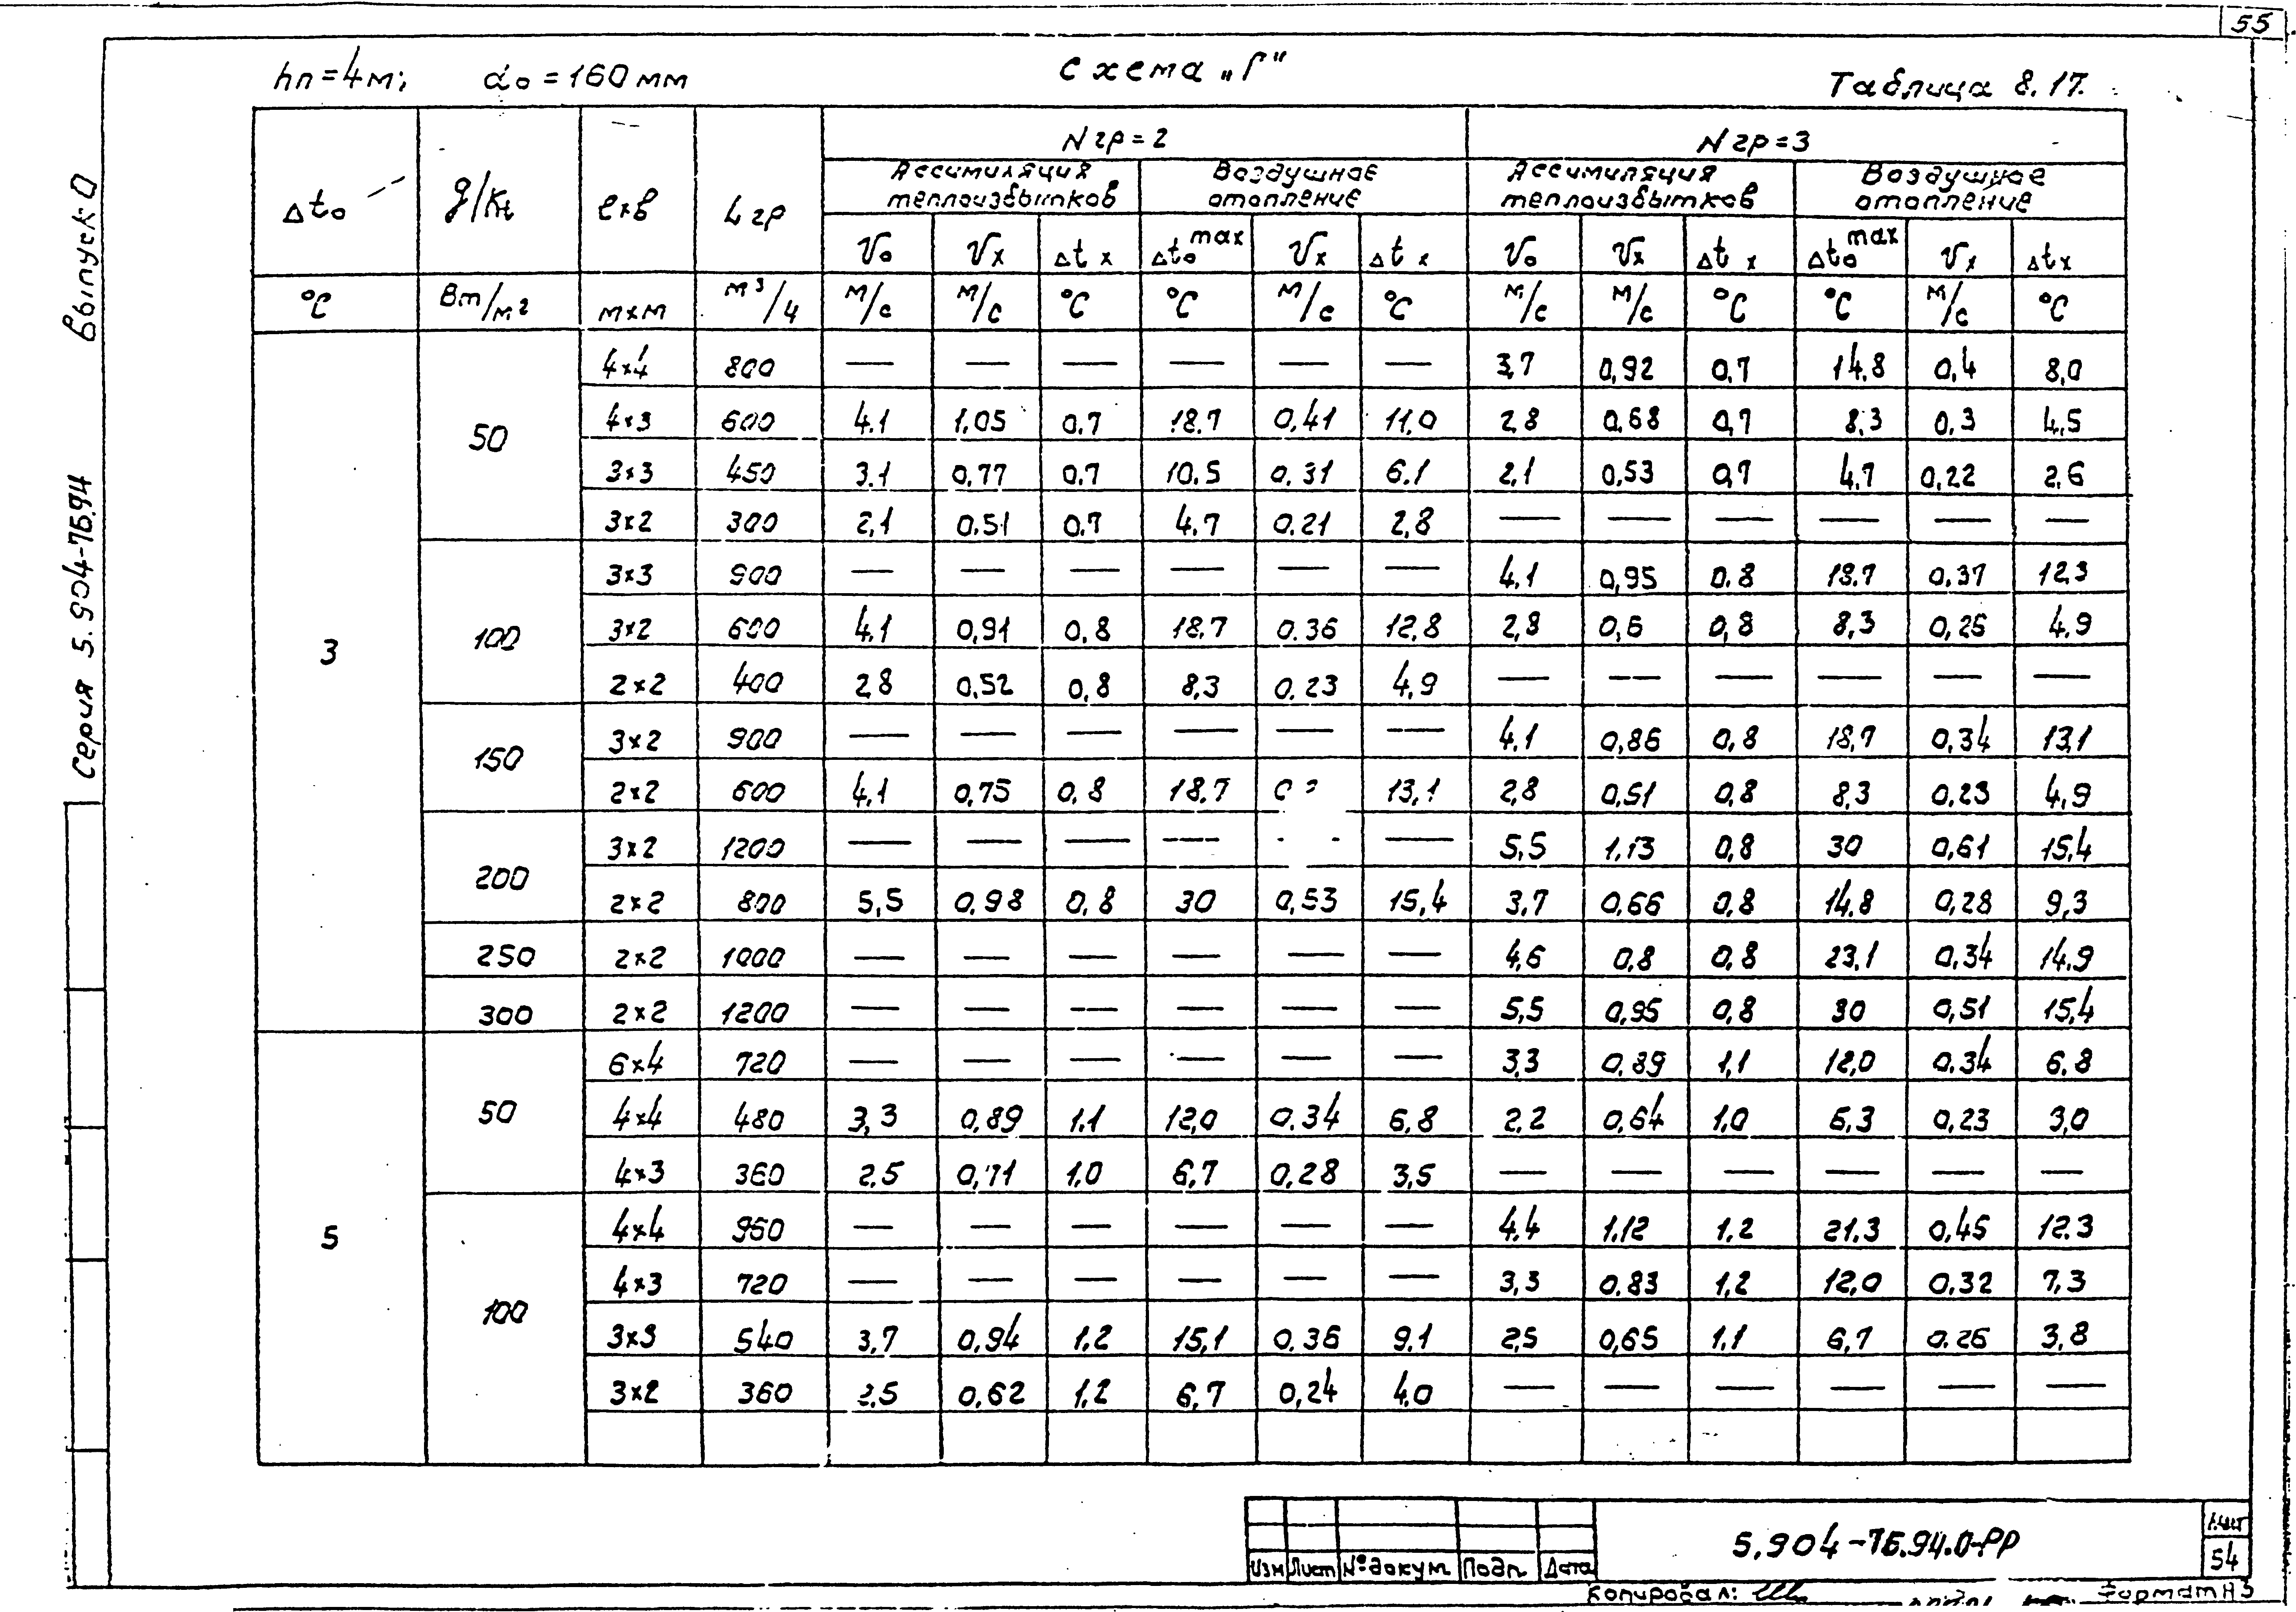 55
hп=4м; do=160мм
Схема „Г"
Таблица 8.17.
Выпуск 0
Серия 5.904-75.94
Δto | q/Kt | ℓ×в | Lгр | Nгр=2 | Nгр=3
Ассимиляция теплоизбытков | Воздушное отопление | Ассимиляция теплоизбытков | Воздушное отопление
Vo | Vx | Δtx | Δto max | Vx | Δtx | Vo | Vx | Δtx | Δto max | Vx | Δtx
°C | Вт/м² | м×м | м³/ч | м/с | м/с | °C | °C | м/с | °C | м/с | м/с | °C | °C | м/с | °C
3 | 50 | 4×4 | 800 | — | — | — | — | — | — | 3,7 | 0,92 | 0,7 | 14,8 | 0,4 | 8,0
4×3 | 600 | 4.1 | 1,05 | 0.7 | 18.7 | 0,41 | 11,0 | 2,8 | 0,68 | 0,7 | 8,3 | 0,3 | 4,5
3×3 | 450 | 3.1 | 0,77 | 0.7 | 10.5 | 0,31 | 6.1 | 2,1 | 0,53 | 0,7 | 4,7 | 0,22 | 2,6
3×2 | 300 | 2,1 | 0,51 | 0.7 | 4.7 | 0.21 | 2,8 | — | — | — | — | — | —
100 | 3×3 | 900 | — | — | — | — | — | — | 4,1 | 0,95 | 0.8 | 18.7 | 0,37 | 12,3
3×2 | 600 | 4,1 | 0,91 | 0,8 | 18.7 | 0.36 | 12,8 | 2,8 | 0,6 | 0,8 | 8,3 | 0,25 | 4,9
2×2 | 400 | 2,8 | 0,52 | 0,8 | 8,3 | 0.23 | 4,9 | — | — | — | — | — | —
150 | 3×2 | 900 | — | — | — | — | — | — | 4.1 | 0,86 | 0,8 | 18,7 | 0,34 | 13,1
2×2 | 600 | 4,1 | 0,75 | 0,8 | 18.7 | 13,1 | 2,8 | 0,51 | 0,8 | 8,3 | 0,23 | 4,9
200 | 3×2 | 1200 | — | — | — | — | — | — | 5,5 | 1,13 | 0,8 | 30 | 0,61 | 15,4
2×2 | 800 | 5,5 | 0,98 | 0,8 | 30 | 0,53 | 15,4 | 3,7 | 0,66 | 0,8 | 14,8 | 0,28 | 9,3
250 | 2×2 | 1000 | — | — | — | — | — | — | 4,6 | 0,8 | 0,8 | 23,1 | 0,34 | 14,9
300 | 2×2 | 1200 | — | — | — | — | — | — | 5,5 | 0,95 | 0,8 | 30 | 0,51 | 15,4
5 | 50 | 6×4 | 720 | — | — | — | — | — | — | 3,3 | 0,89 | 1,1 | 12,0 | 0,34 | 6,8
4×4 | 480 | 3,3 | 0,89 | 1.1 | 12,0 | 0.34 | 6,8 | 2,2 | 0,64 | 1,0 | 5,3 | 0,23 | 3,0
4×3 | 360 | 2,5 | 0,71 | 1,0 | 6,7 | 0,28 | 3,5 | — | — | — | — | — | —
100 | 4×4 | 960 | — | — | — | — | — | — | 4,4 | 1,12 | 1,2 | 21.3 | 0,45 | 12.3
4×3 | 720 | — | — | — | — | — | — | 3,3 | 0.83 | 1,2 | 12,0 | 0.32 | 7,3
3×3 | 540 | 3,7 | 0,94 | 1,2 | 15,1 | 0,36 | 9,1 | 2,5 | 0,65 | 1,1 | 6,7 | 0.26 | 3,8
3×2 | 360 | 2,5 | 0,62 | 1,2 | 6,7 | 0,24 | 4,0 | — | — | — | — | — | —
Изм Лист №докум. Подп. Дата
5.904-75.94.0-РР
Лист
54
Копировал:
Формат А3